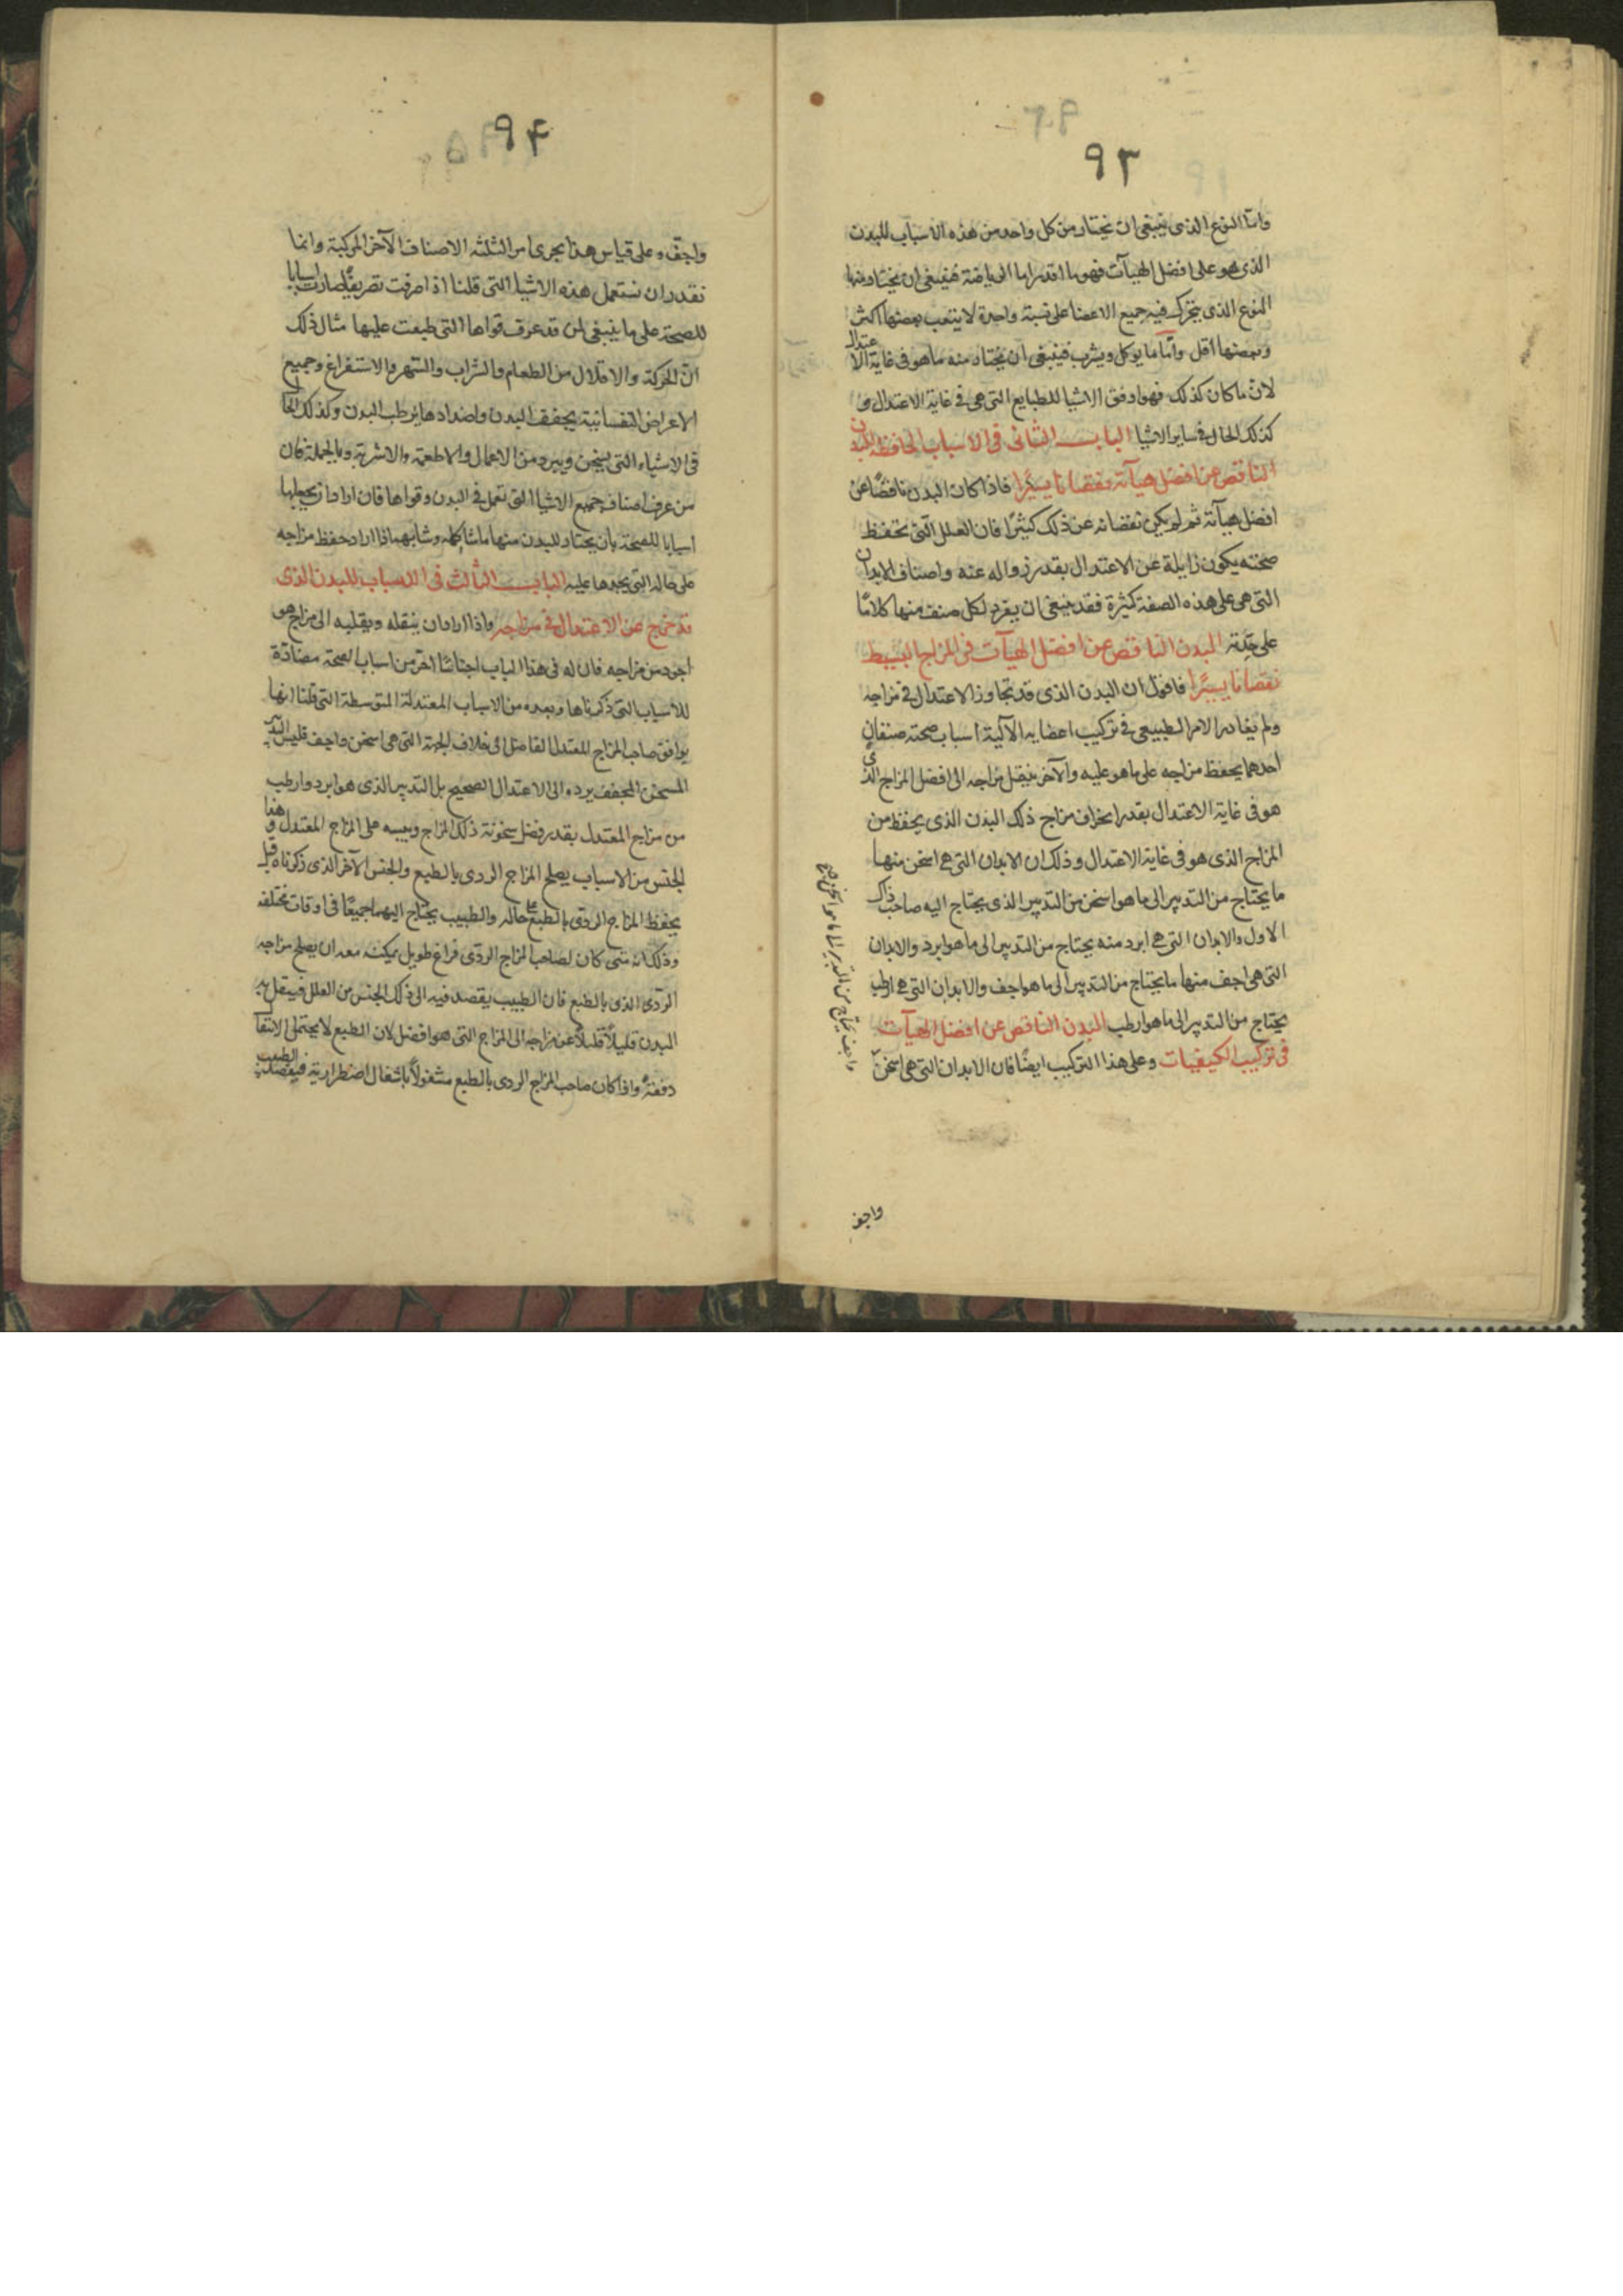 ٩٣
واما النوع الذى ينبغى ان يختار من كل واحد من هذه الاسباب للبدن
الذى هو على افضل الهيآت فهو ما اما الرياضة فينبغى ان يختار منها
النوع الذى يتحرك فيه جميع الاعضا على نسبة واحدة لا يتعب بعضها اكثر
وبعضها اقل واما ما يوكل ويشرب فينبغى ان يختار منه ما هو فى غاية الاعتدال
لان ما كان كذلك فهو اوفق الاشيا للطبايع التى هى فى غاية الاعتدال و
كذلك الحال فى ساير الاشيا الباب الثانى فى الاسباب الحافظة للبدن
الناقص عن افضل هيآته نقصانا يسيرًا فاذا كان البدن ناقصًا عن
افضل هيآته ثم لم يكن نقصانه عن ذلك كثيرًا فان العلل التى تحفظ
صحته يكون زايلة عن الاعتدال بقدر زواله عنه واصناف الابدان
التى هى على هذه الصفة كثيرة فقد ينبغى ان يفرد لكل صنف منها كلامًا
على حدته البدن الناقص عن افضل الهيآت فى المزاج البسيط
نقصانا يسيرًا فاقول ان البدن الذى قد تجاوز الاعتدال فى مزاجه
ولم يغادر الامر الطبيعى فى تركيب اعضايه الآلية اسباب صحته صنفان
احدهما يحفظ مزاجه على ما هو عليه والآخر ينقل مزاجه الى افضل المزاج الذى
هو فى غاية الاعتدال بقدر انحراف مزاج ذلك البدن الذى يحفظ من
المزاج الذى هو فى غاية الاعتدال وذلك ان الابدان التى هى اسخن منها
ما يحتاج من التدبير الى ما هو اسخن من التدبير الذى يحتاج اليه صاحب ذاك
الاول والابدان التى هى ابرد منه يحتاج من التدبير الى ما هو ابرد والابدان
التى هى اجف منها ما يحتاج من التدبير الى ما هو اجف والابدان التى هى ارطب
يحتاج من التدبير الى ما هو ارطب البدن الناقص عن افضل الهيآت
فى تركيب الكيفيات وعلى هذا التركيب ايضًا فان الابدان التى هى اسخن
واجف يحتاج من التدبير الى ما هو اسخن
واجف
٩۴
واجف وعلى قياس هذا يجرى امر الثلثة الاصناف الآخر المركبة وانما
نقدر ان نستعمل هذه الاشيا التى قلنا اذا صرفت تصريفًا صارت اسبابا
للصحة على ما ينبغى من قد عرف قواها التى طبعت عليها مثال ذلك
ان الحركة والاقلال من الطعام والشراب والسهر والاستفراغ وجميع
الاعراض النفسانية يجفف البدن واضدادها يرطب البدن وكذلك الحال
فى الاشياء التى يسخن ويبرد من الاعمال والاطعمة والاشربة وبالجملة فان
من عرف اصناف جميع الاشيا التى تعمل فى البدن وقواها فان اراد ان يجعلها
اسبابا للصحة بان يختار للبدن منها ما شاكله وشابهه اذا اراد حفظ مزاجه
على حاله التى يجدها عليه الباب الثالث فى الاسباب للبدن الذى
قد خرج عن الاعتدال فى مزاجه واذا اراد ان ينقله ويقلبه الى مزاج هو
اجود من مزاجه فان له فى هذا الباب اجناسًا اخر من اسباب الصحة مضادة
للاسباب التى ذكرناها وبعده من الاسباب المعتدلة المتوسطة التى قلنا انها
يوافق صاحب المزاج المعتدل الفاضل فى خلاف الجهة التى هى اسخن واجف فليس التدبير
المسخن المجفف يرده الى الاعتدال الصحيح بل التدبير الذى هو ابرد وارطب
من مزاج المعتدل بقدر فضل سخونة ذلك المزاج ويبسه على المزاج المعتدل وهذا
الجنس من الاسباب يصلح المزاج الردى بالطبع والجنس الآخر الذى ذكرناه قبل
يحفظ المزاج الردى بالطبع على حاله والطبيب يحتاج اليهما جميعًا فى اوقات مختلفه
وذلك انه متى كان لصاحب المزاج الردى فراغ طويل يمكنه معه ان يصلح مزاجه
الردى الذى بالطبع فان الطبيب يقصد فيه الى ذلك الجنس من العلل فينقل به
البدن قليلًا قليلًا عن مزاجه الى المزاج التى هو افضل لان الطبع لا يحتمل الانتقال
دفعةً واذا كان صاحب المزاج الردى بالطبع مشغولًا باشغال اضطرارية فيقصد الطبيب